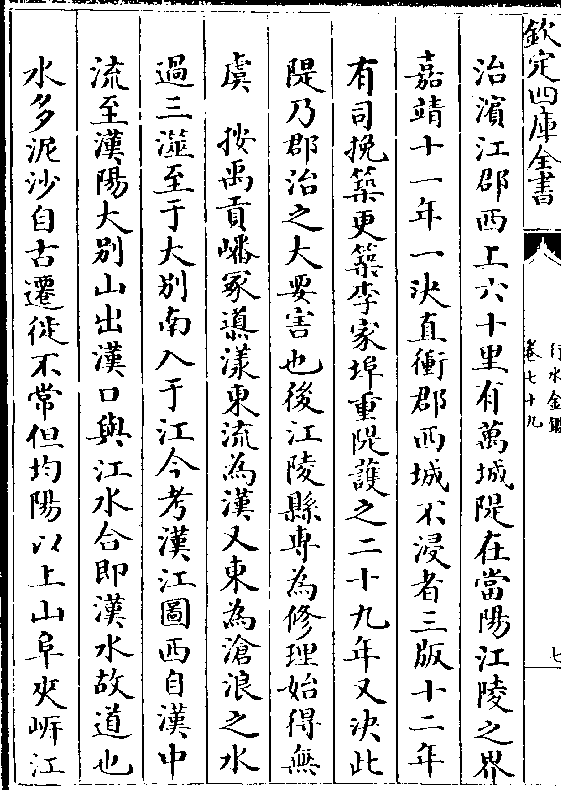 欽定四庫全書
行水金鑑
卷七十九
七
治濱江郡西上六十里有萬城隄在當陽江陵之界
嘉靖十一年一決直衝郡西城不浸者三版十二年
有司挽築更築李家埠重隄護之二十九年又決此
隄乃郡治之大要害也後江陵縣專為修理始得無
虞　按禹貢嶓冢導漾東流為漢又東為滄浪之水
過三澨至于大別南入于江今考漢江圖西自漢中
流至漢陽大別山出漢口與江水合即漢水故道也
水多泥沙自古遷徙不常但均陽以上山阜夾岸江